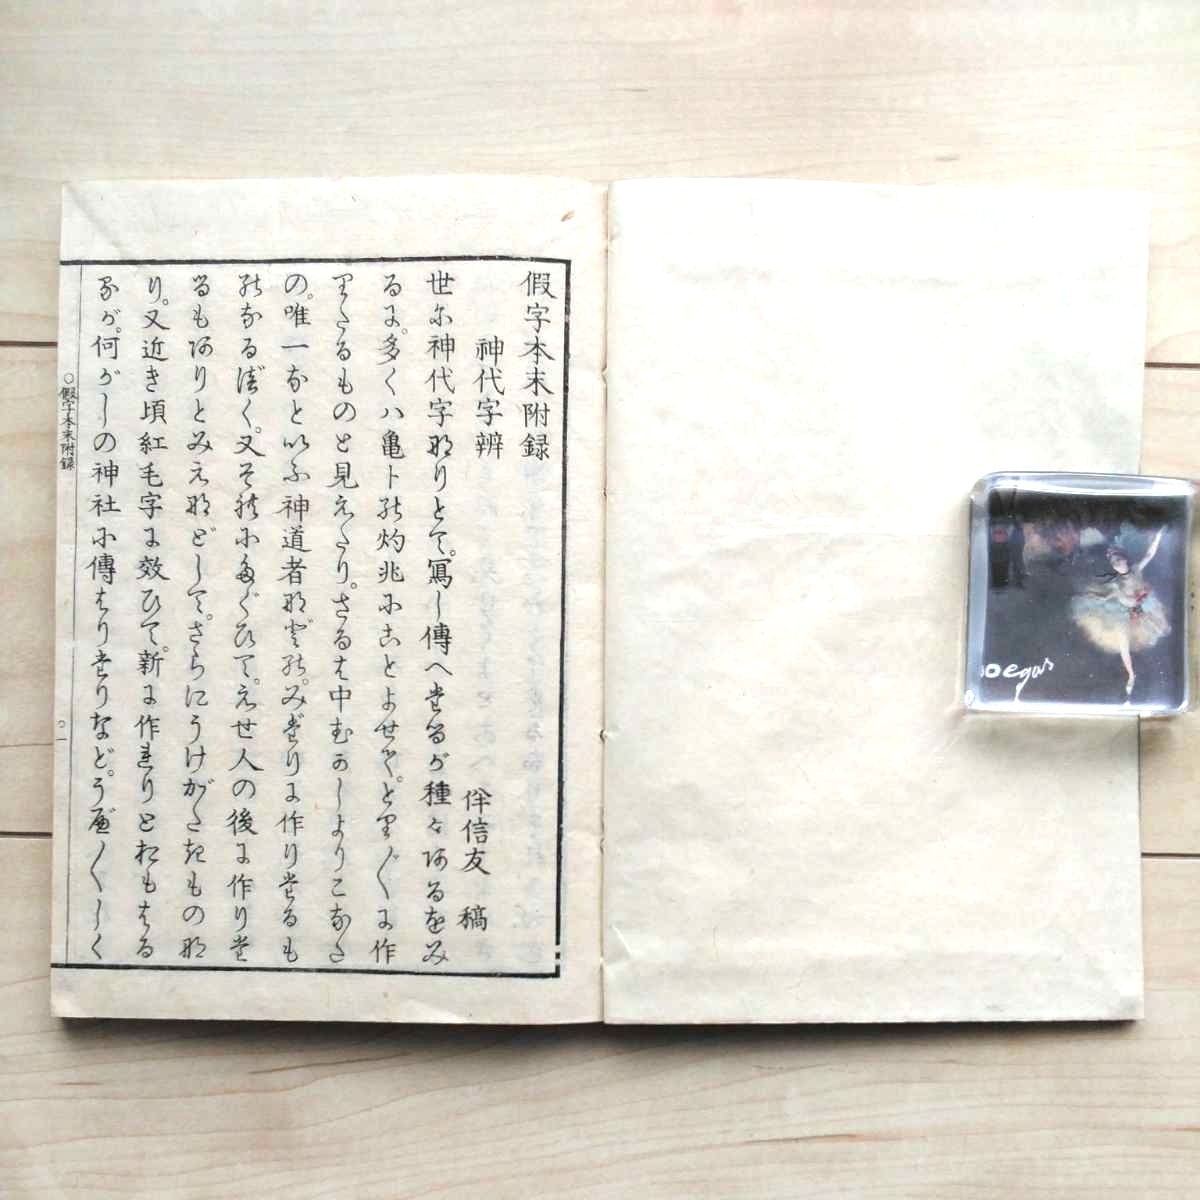 假字本末附録
神代字辨
伴信友 稿
世に神代字なりとて。寫し傳へたるが種々あるをみ
るに。多くハ亀卜の灼兆にことよせて。とり〴〵に作
りたるものと見えたり。さるは中むかしよりこなた
の。唯一などといふ神道者などの。みだりに作りたるも
のなるべく。又それにたぐひて。えせ人の後に作りた
るもありとみえなどして。さらにうけがたきもの な
り。又近き頃紅毛字に效ひて。新に作れりとおもはる
るが。何がしの神社に傳はりたりなど。うべ〳〵しく
○假字本末附録
○一
Degas